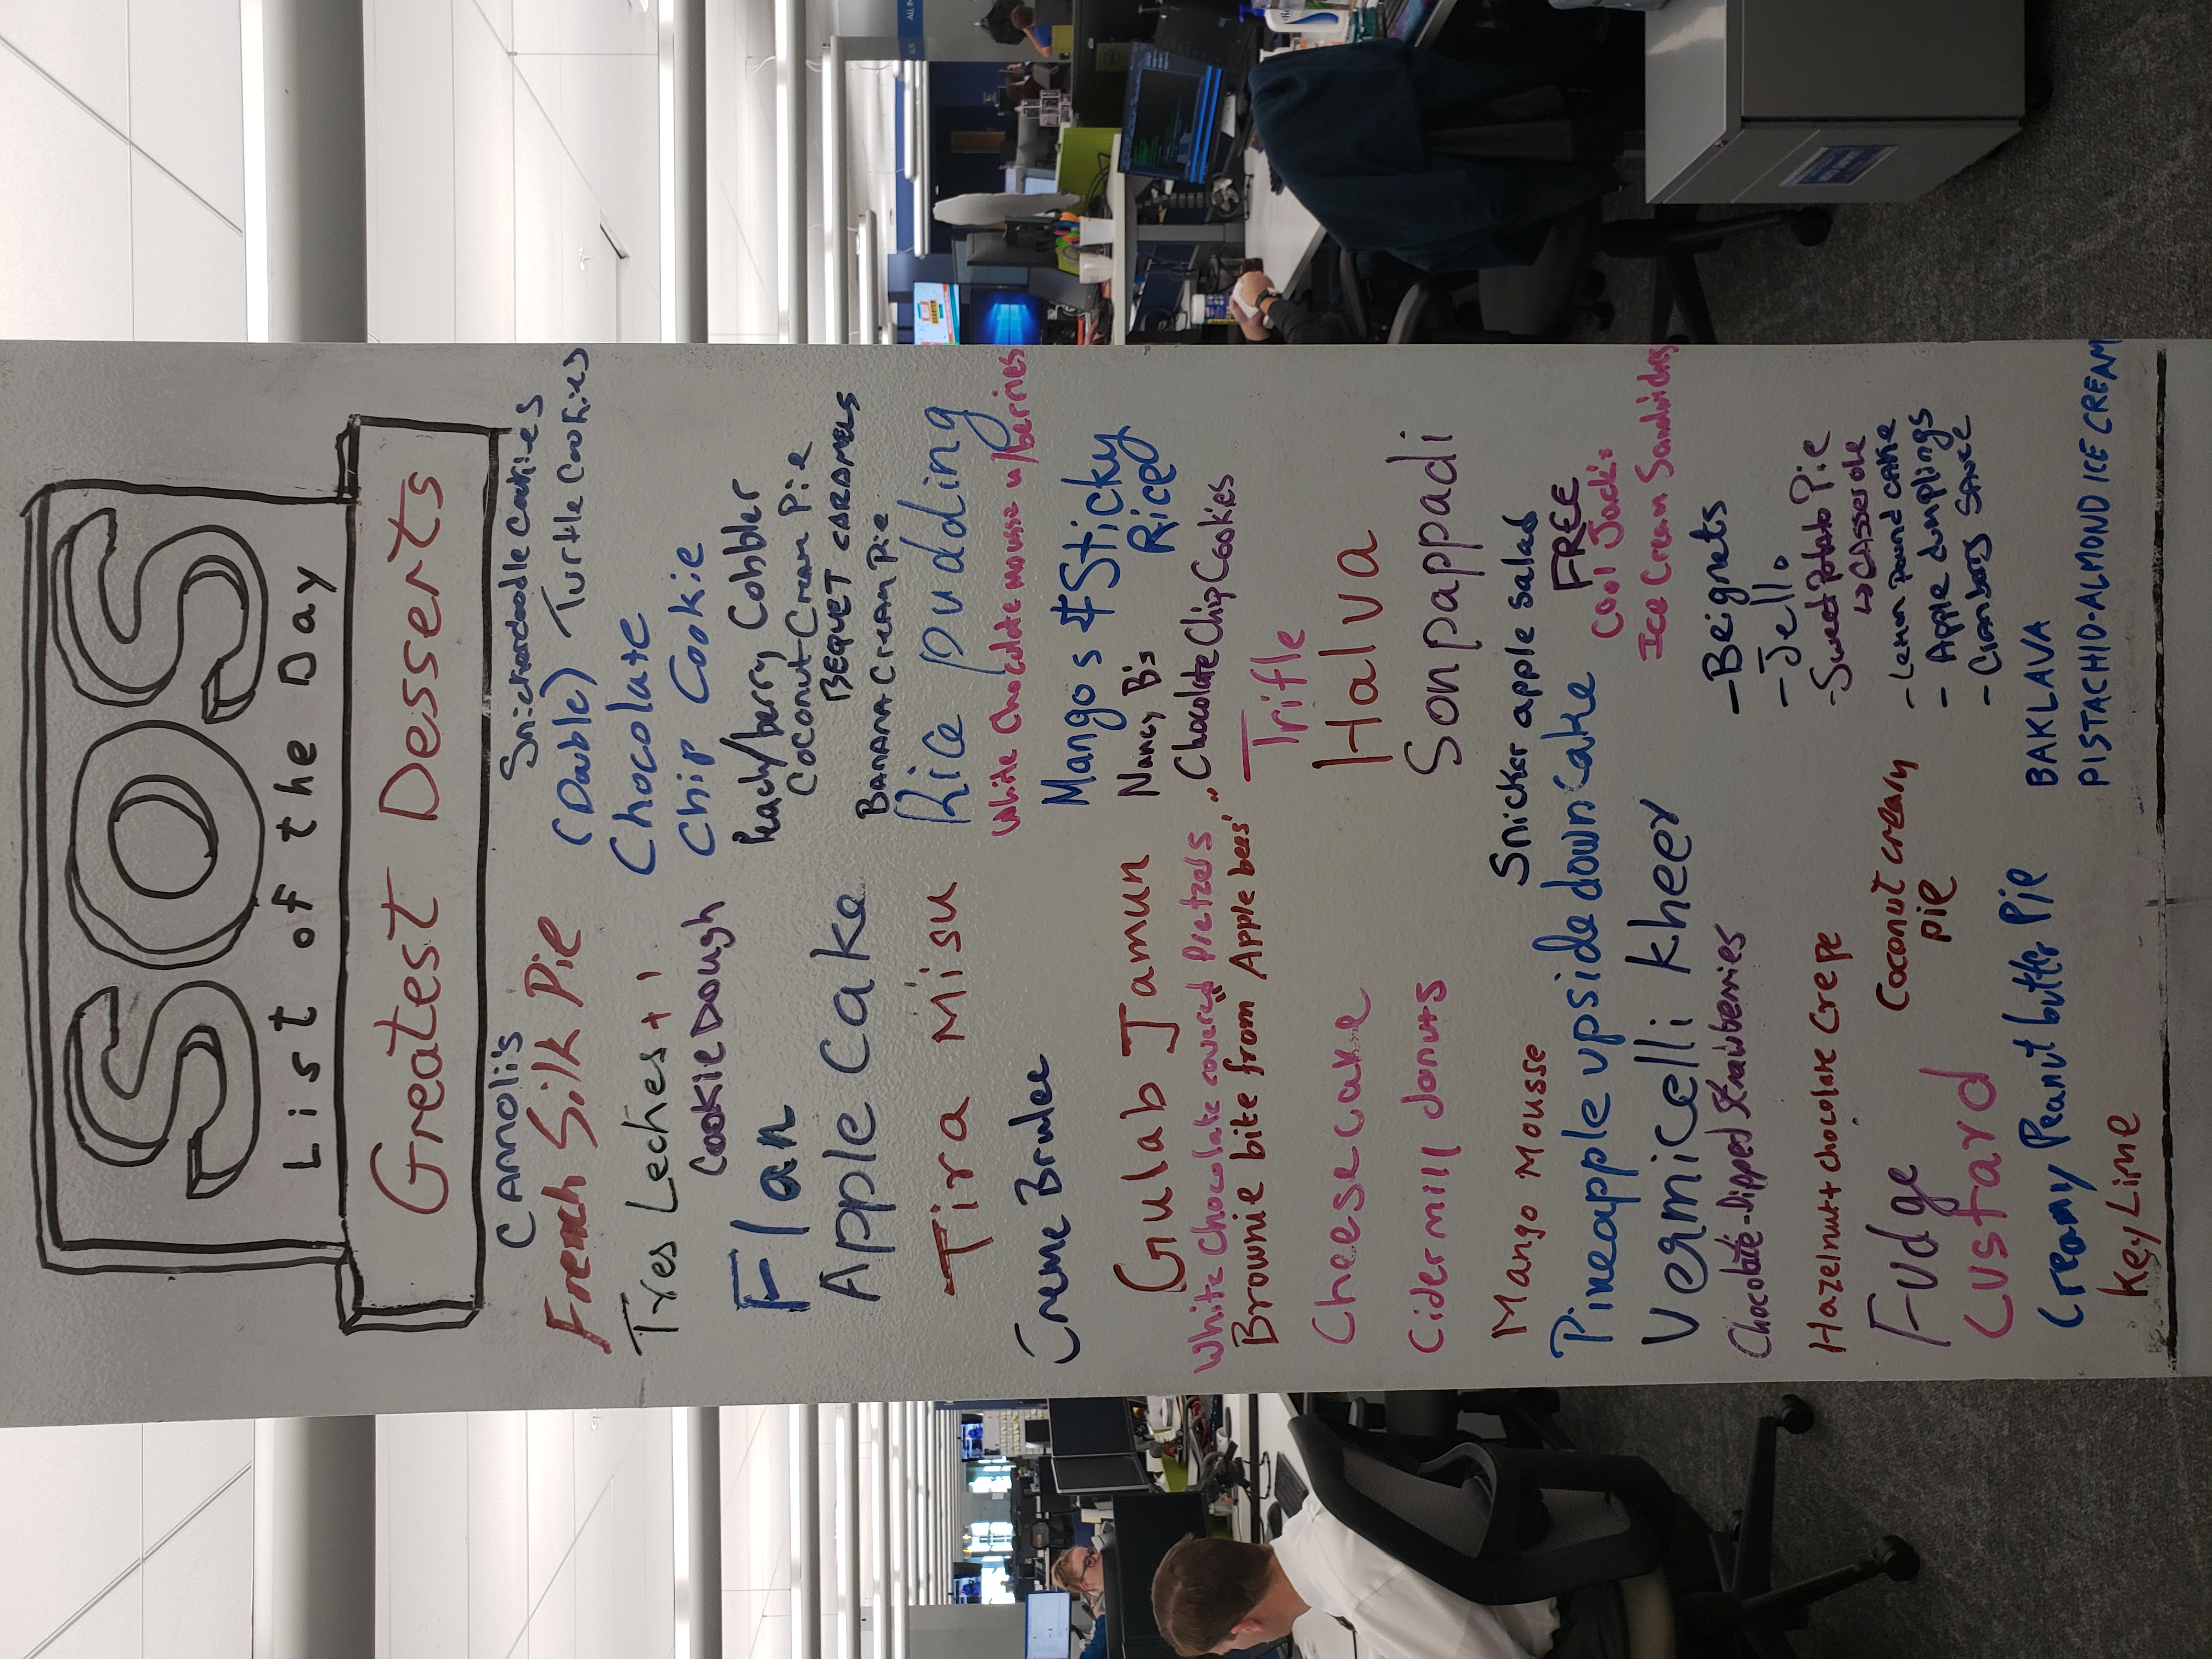 SOS
List of the Day
Greatest Desserts
CANNOLi's
French Silk Pie
Tres Leches + 1
Cookie Dough
Flan
Apple Cake
Tira Misu
Creme Brulee
Gulab Jamun
White Chocolate covered Pretzels
Brownie bite from "Apple bees"
Cheesecake
Cidermill donuts
Mango Mousse
Pineapple upside down cake
Vermicelli kheer
Chocolate-Dipped Strawberries
Hazelnut + chocolate Crepe
Fudge
Coconut cream
pie
Custard
Creamy Peanut butter Pie
Key Lime
Snickerdoodle Cookies
(Double)
Turtle Cookies
Chocolate
Chip Cookie
Peach/berry Cobbler
Coconut Cream Pie
BEQUET CARAMELS
BANANA CREAM PiE
Rice pudding
White Chocolate mousse w/berries
Mangos & Sticky
Rice
Nancy B's
Chocolate Chip Cookies
Trifle
Halva
Sonpappadi
Snicker apple salad
FREE
Cool Jack's
Ice Cream Sandwiches
- Beignets
- Jello
- Sweet Potato Pie
↳ CAsserole
- Lemon Pound CAKE
- Apple dumplings
- Cranberry SAUCE
BAKLAVA
PISTACHIO-ALMOND ICE CREAM